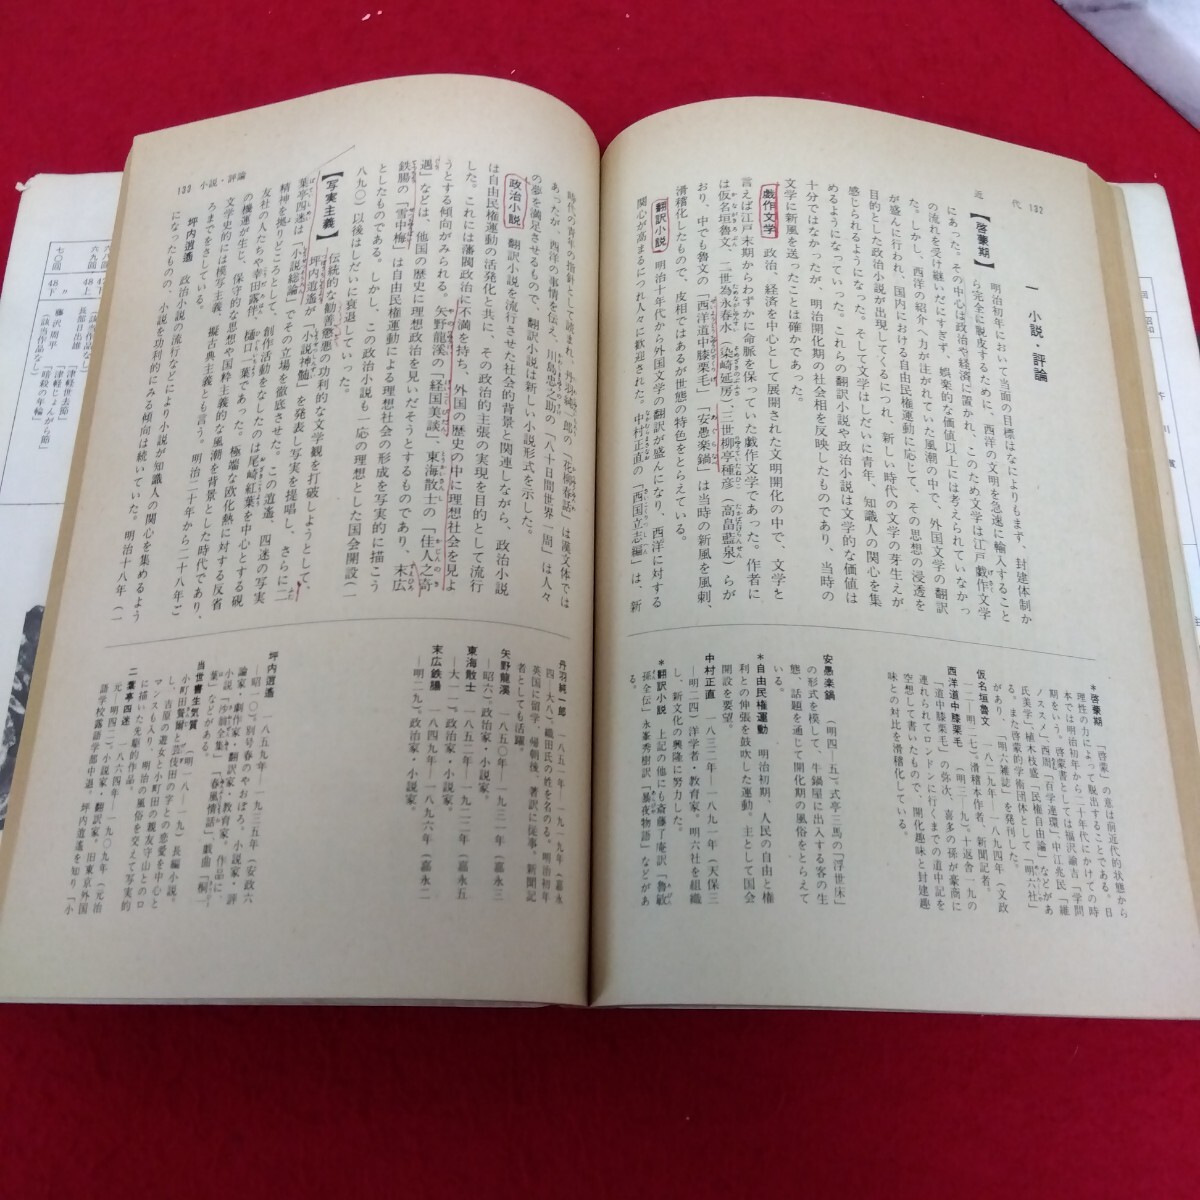 近代 132
一 小説・評論
【啓蒙期】 明治初年において当面の目標はなによりもまず、封建体制か
ら完全に脱皮するために、西洋の文明を急速に輸入すること
にあった。その中心は政治や経済に置かれ、このため文学は江戸戯作文学
の流れを受け継いだにすぎず、娯楽的な価値以上には考えられていなかっ
た。しかし、西洋の紹介へ力が注がれていた風潮の中で、外国文学の翻訳
が盛んに行われ、国内における自由民権運動に応じて、その思想の浸透を
目的とした政治小説が出現してくるにつれ、新しい時代の文学の芽生えが
感じられるようになっていった。そして文学はしだいに青年、知識人の関心を集
めるようになっていった。これらの翻訳小説や政治小説は文学的な価値は
十分ではなかったが、明治開化期の社会相を反映したものであり、当時の
文学に新風を送ったことは確かであった。
戯作文学 政治、経済を中心として展開された文明開化の中で、文学と
言えば江戸末期からわずかに命脈を保っていた戯作文学であった。作者に
は仮名垣魯文、二世為永春水(染崎延房)、三世柳亭種彦(高畠藍泉)らが
おり、中でも魯文の「西洋道中膝栗毛」「安愚楽鍋」は当時の新風を風刺、
滑稽化したもので、皮相ではあるが世態の特色をとらえている。
翻訳小説 明治十年代から外国文学の翻訳が盛んになり、西洋に対する
関心が高まるにつれ人々に歓迎された。中村正直の「西国立志編」は、新
*啓蒙期 「啓蒙」の意は前近代的状態から
理性の力によって脱出することである。日
本では明治初年から二十年代にかけての時
期をいう。啓蒙書としては福沢諭吉「学問
ノススメ」、西周「百学連環」、中江兆民「維
氏美学」、植木枝盛「民権自由論」などがあ
る。また啓蒙的学術団体として「明六社」
があり、「明六雑誌」を発刊した。
仮名垣魯文 一八二九年―一八九四年(文政
一二―明二七)。滑稽本作者、新聞記者。
西洋道中膝栗毛 (明三―九)。十返舎一九の
「道中膝栗毛」の弥次、喜多の孫が豪商に
連れられてロンドンに行くまでの道中記を
空想して書いたもので、開化趣味と封建趣
味との対比を滑稽化している。
安愚楽鍋 (明四―五)。式亭三馬の「浮世床」
の形式を模して、牛鍋屋に出入する客の生
態、話題を通じて開化期の風俗をとらえて
いる。
*自由民権運動 明治初期、人民の自由と権
利との伸張を鼓吹した運動。主として国会
開設を要望。
中村正直 一八三二年―一八九一年(天保三
―明二四)洋学者・教育家。明六社を組織
し、新文化の興隆に努力した。
*翻訳小説 上記の他にも斎藤了庵訳「魯敏
孫全伝」、永峯秀樹訳「暴夜物語」などがあ
る。
133 小説・評論
時代の青年の指針として読まれ、丹羽純一郎の「花柳春話」は漢文体では
あったが、西洋の事情を伝え、川島忠之助の「八十日間世界一周」は人々
の夢を満足させるもので、翻訳小説は新しい小説形式を示した。
政治小説 翻訳小説を流行させた社会的背景と関連しながら、政治小説
は自由民権運動の活発化と共に、その政治的主張の実現を目的として流行
した。これには藩閥政治に不満を持ち、外国の歴史の中に理想社会を見よ
うとする傾向がみられる。矢野龍溪の「経国美談」、東海散士の「佳人之奇
遇」などは、他国の歴史に理想政治を見いだそうとするものであり、末広
鉄腸の「雪中梅」は自由民権運動による理想社会の形成を写実的に描こう
としたものである。しかし、この政治小説も一応の理想とした国会開設(一
八九〇)以後はしだいに衰退していった。
【写実主義】 伝統的な勧善懲悪の功利的な文学観を打破しようとして、
坪内逍遥が「小説神髄」を発表し写実を提唱し、さらに二
葉亭四迷は「小説総論」でその立場を徹底させた。この逍遥、四迷の写実
精神を拠りどころとして、創作活動をなしたのは尾崎紅葉を中心とする硯
友社の人たちや幸田露伴、樋口一葉であった。極端な欧化熱に対する反省
の機運が生じ、保守的な思想や国粋主義的な風潮を背景とした時代であり、
文学史的には模写主義、擬古典主義とも言う。明治二十年から二十八年ご
ろまでをさしている。
坪内逍遥 政治小説の流行などにより小説が知識人の関心を集めるよう
になったものの、小説を功利的にみる傾向は続いていた。明治十八年(一
丹羽純一郎 一八五一年―一九一九年(嘉永
四―大八)。織田氏の姓を名のる。明治初年
英国に留学、帰朝後、著訳に従事、新聞記
者としても活躍。
矢野龍溪 一八五〇年―一九三一年(嘉永三
―昭六)。政治家・小説家。
東海散士 一八五二年―一九二二年(嘉永五
―大一一)。政治家・小説家。
末広鉄腸 一八四九年―一八九六年(嘉永二
―明二九)。政治家・小説家。
坪内逍遥 一八五九年―一九三五年(安政六
―昭一〇)。別号春のやおぼろ。小説家・評
論家・劇作家・翻訳家・教育家。作品に、
小説「沙翁全集」「家庭情話」、戯曲「桐一
葉」などがある。
当世書生気質 (明一八―一九)。長編小説。
小町田粲爾と芸妓田の字との恋愛を中心と
し、吉原の遊女と小町田の親友守山とのロ
マンスも入り、明治の風俗を交えて写実的
に描いた先駆的作品。
二葉亭四迷 一八六四年―一九〇九年(元治
元―明四二)。小説家、翻訳家。旧東京外国
語学校露語学部中退。坪内逍遥を知り「小
六九回 48上 長部日出雄 「津軽世去節」
「津軽じょんから節」
七〇回 48下 藤沢周平 「暗殺の年輪」
(該当作品なし)